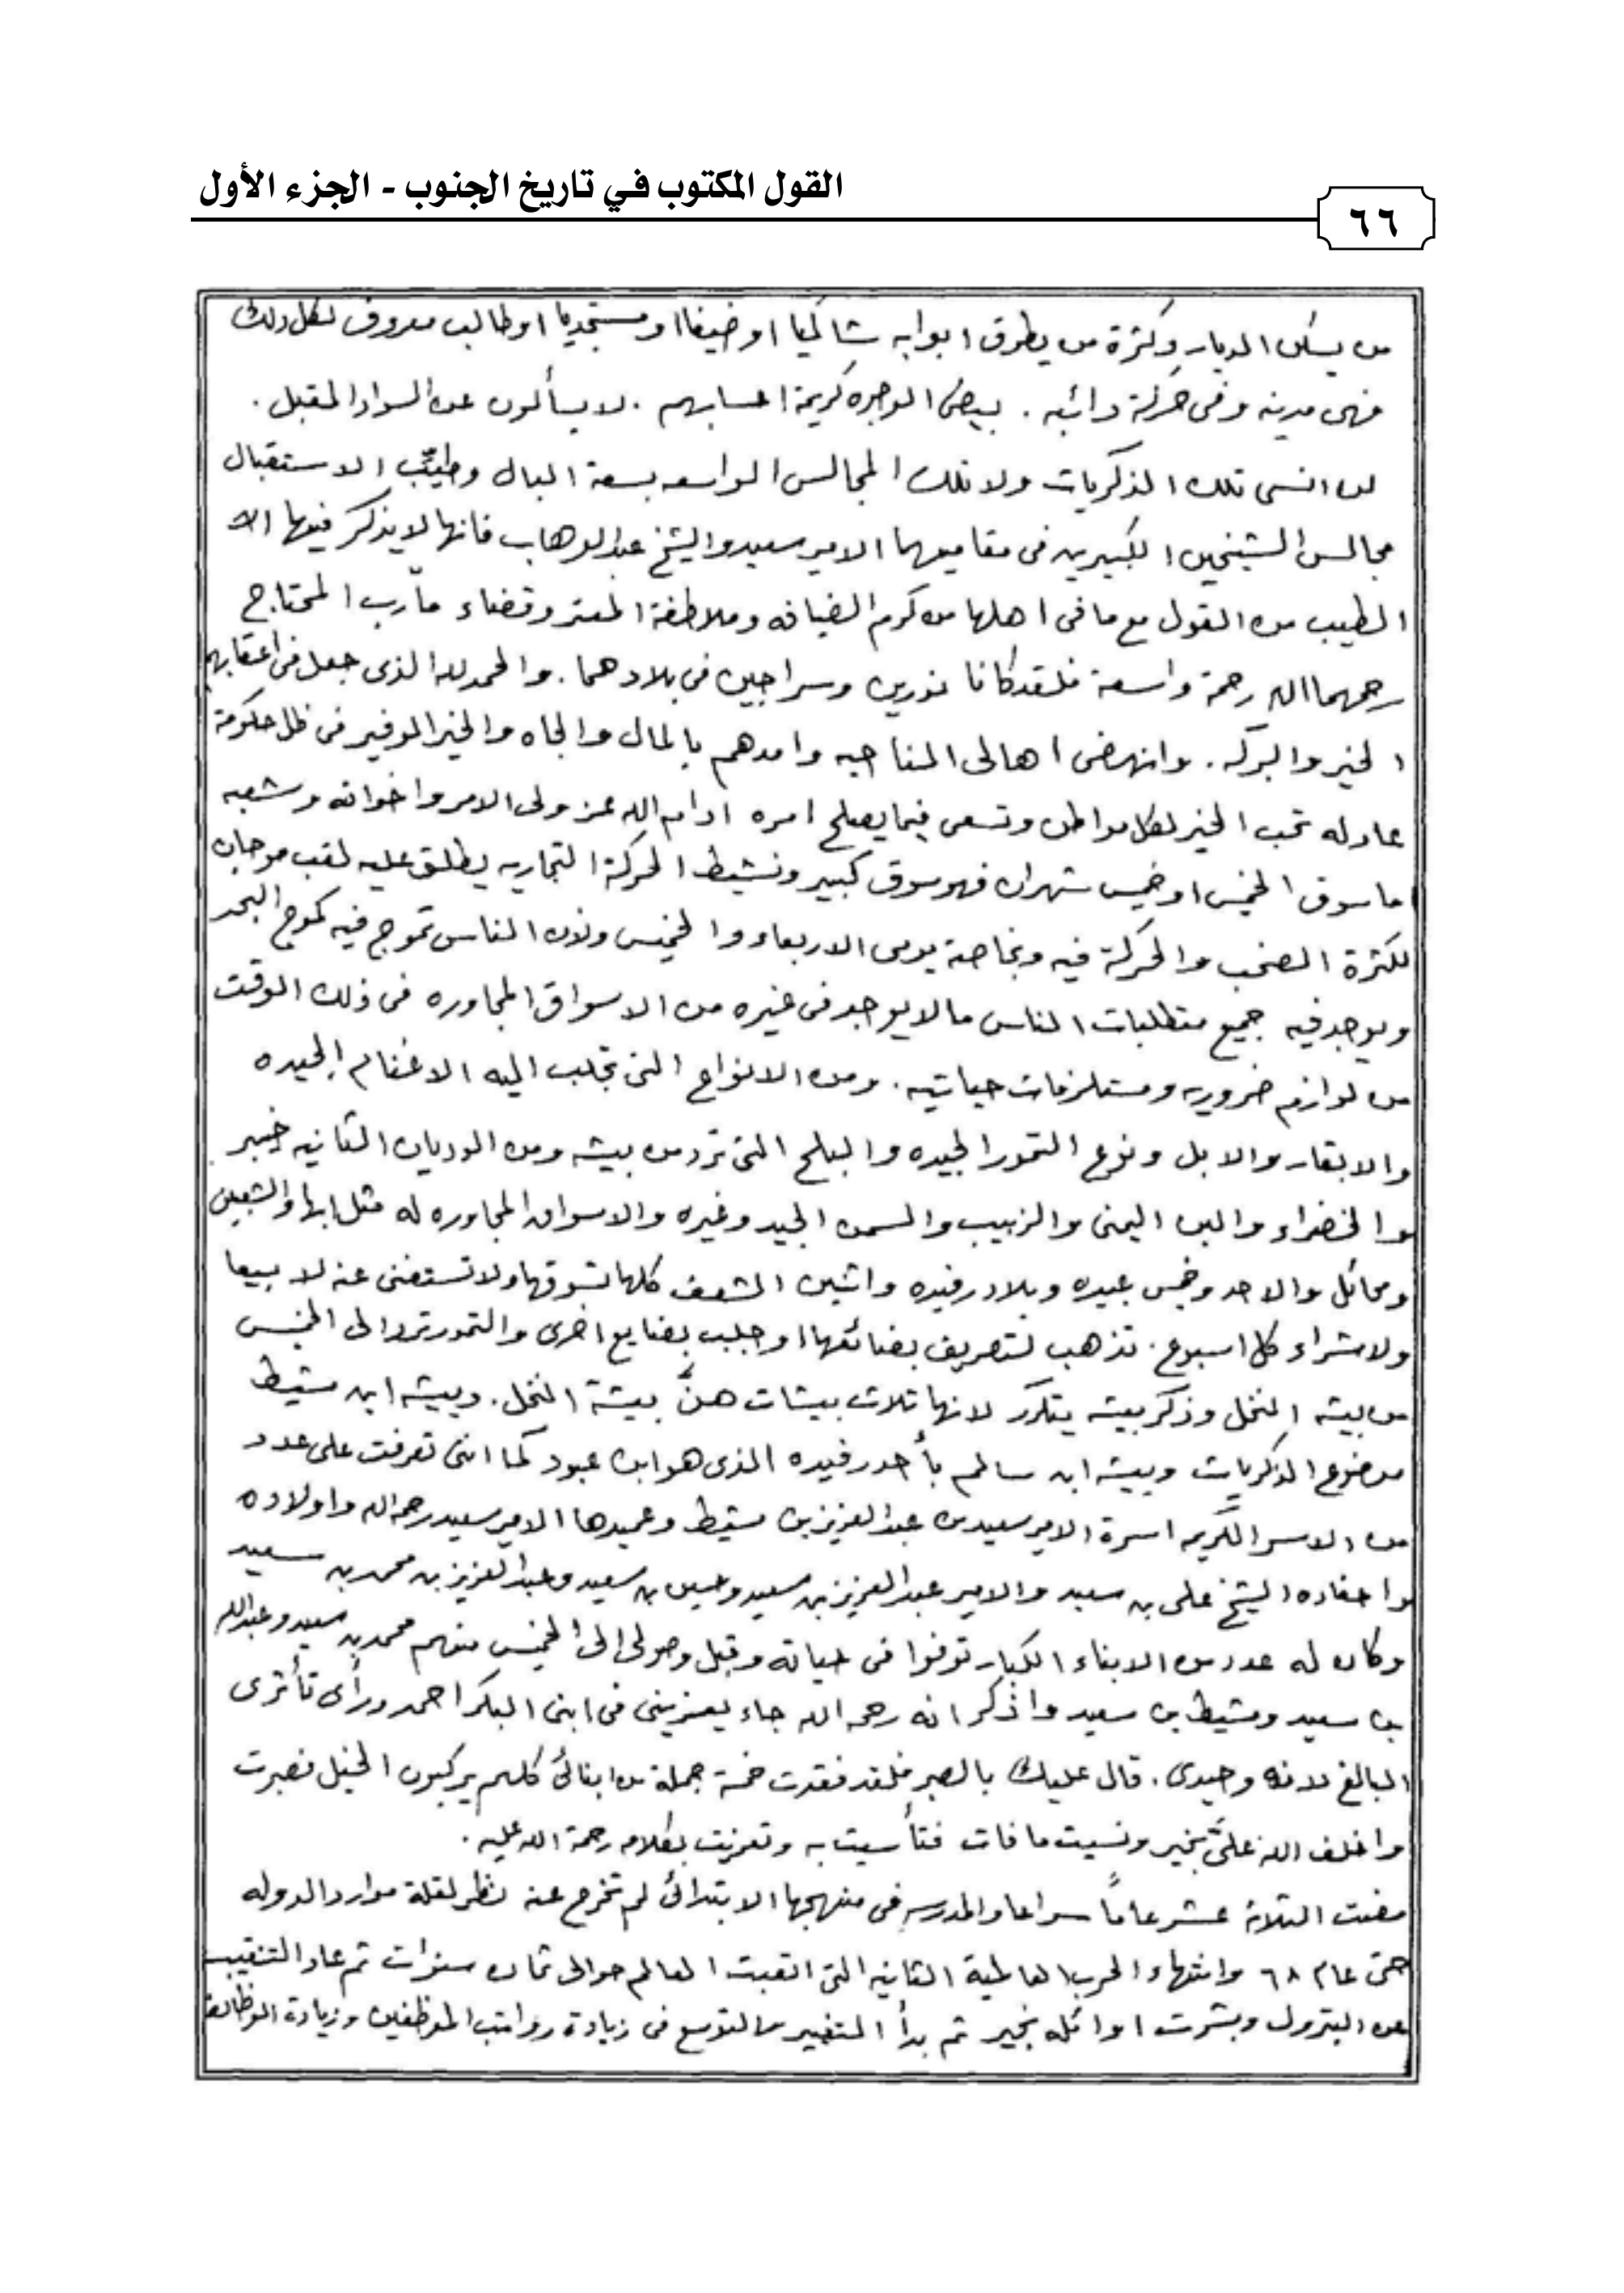 القول المكتوب في تاريخ الجنوب - الجزء الأول
٦٦
من يسكن الديار وكثرة من يطرق ابوابه شاكيا او ضيفا او مستجديا او طالب معروف لكل ذلك
فهى مدينه وفى حركة دائبه . بيض الوجوه كريمة احسابهم . لا يسألون عن السواد المقبل .
لن انسى تلك الذكريات ولا تلك المجالس الواسعه بسعة البال وطيّب الاستقبال
مجالس الشيخين الكبيرين فى مقاميهما الامير سعيد والشيخ عبدالوهاب فانها لا يذكر فيها الا
الطيب من القول مع ما فى اهلها من كرم الضيافه وملاطفة المعتر وقضاء مآرب المحتاج
رحمهما الله رحمة واسعة فلقد كانا نورين وسراجين فى بلادهما . والحمدلله الذى جعل فى اعقابهم
الخير والبركه . وانهض اهالى المناحيه وامدهم بالمال والجاه والخير الوفير فى ظل حكومة
عادله تحب الخير لكل مواطن وتسعى فيما يصلح امره ادام الله عز ولى الامر واخوانه وشعبه
اما سوق الخميس او خميس شهران فهو سوق كبير ونشيط الحركة التجاريه يطلق عليه لقب موجان
لكثرة الصخب والحركة فيه وبخاصة يومى الاربعاء والخميس ولان الناس تموج فيه كموج البحر
ويوجد فيه جميع متطلبات الناس مالا يوجد فى غيره من الاسواق المجاوره فى ذلك الوقت
من لوازم ضروريه ومستلزمات حياتيه . ومن الانواع التى تجلب اليه الاغنام الجيده
والابقار والابل ونوع التمور الجيده والبلح التى ترد من بيشه ومن الوديان الثانيه خيبر
والخضراء والبن اليمنى والزبيب والسمن الجيد وغيره والاسواق المجاوره له مثل ابها والشعبين
ومحائل والاحد وخميس عبيده وبلاد رفيده واثنين الشعف كلها تسوقها ولا تستغنى عنه لا بيعا
ولا شراء كل اسبوع . تذهب لتصريف بضائعها او جلب بضايع اخرى والتمور ترد الى الخميس
من بيشه النخل وذكر بيشه يتكرر لانها ثلاث بيشات هنَّ بيشة النخل . وبيشه ابن مشيط
موضوع الذكريات وبيشه ابن سالم بأحد رفيده الذى هو ابن عبود كما اننى تعرفت على عدد
من الاسر الكريمه اسرة الامير سعيد بن عبدالعزيز بن مشيط وعميدها الامير سعيد رحمه الله واولاده
واحفاده الشيخ على بن سعيد والامير عبدالعزيز بن سعيد وحسين بن سعيد وعبدالعزيز بن محمد بن سعيد
وكان له عدد من الابناء الكبار توفوا فى حياته وقبل وصولى الى الخميس منهم محمد بن سعيد وعبدالله
بن سعيد ومشيط بن سعيد واذكر انه رحمه الله جاء يعزينى فى ابنى البكر احمد ورأى تأثرى
البالغ لانه وحيدى . قال عليك بالصبر فلقد فقدت خمسة جملة من ابنائى كلهم يركبون الخيل فصبرت
واخلف الله علىَّ بخير ونسيت ما فات فتأسيت به وتعزيت بكلامه رحمة الله عليه .
مضت الثلاثة عشر عاماً سراعا والمدرسه فى منهجها الابتدائى لم تخرج عنه نظر لقلة موارد الدوله
حتى عام ٦٨ وانتهاء الحرب العالمية الثانيه التى اتعبت العالم حوالى ثمان سنوات ثم عاد التنقيب
عن البترول وبشرت اوائله بخير ثم بدأ التغيير والتوسع فى زيادة رواتب الموظفين وزيادة الوظائف